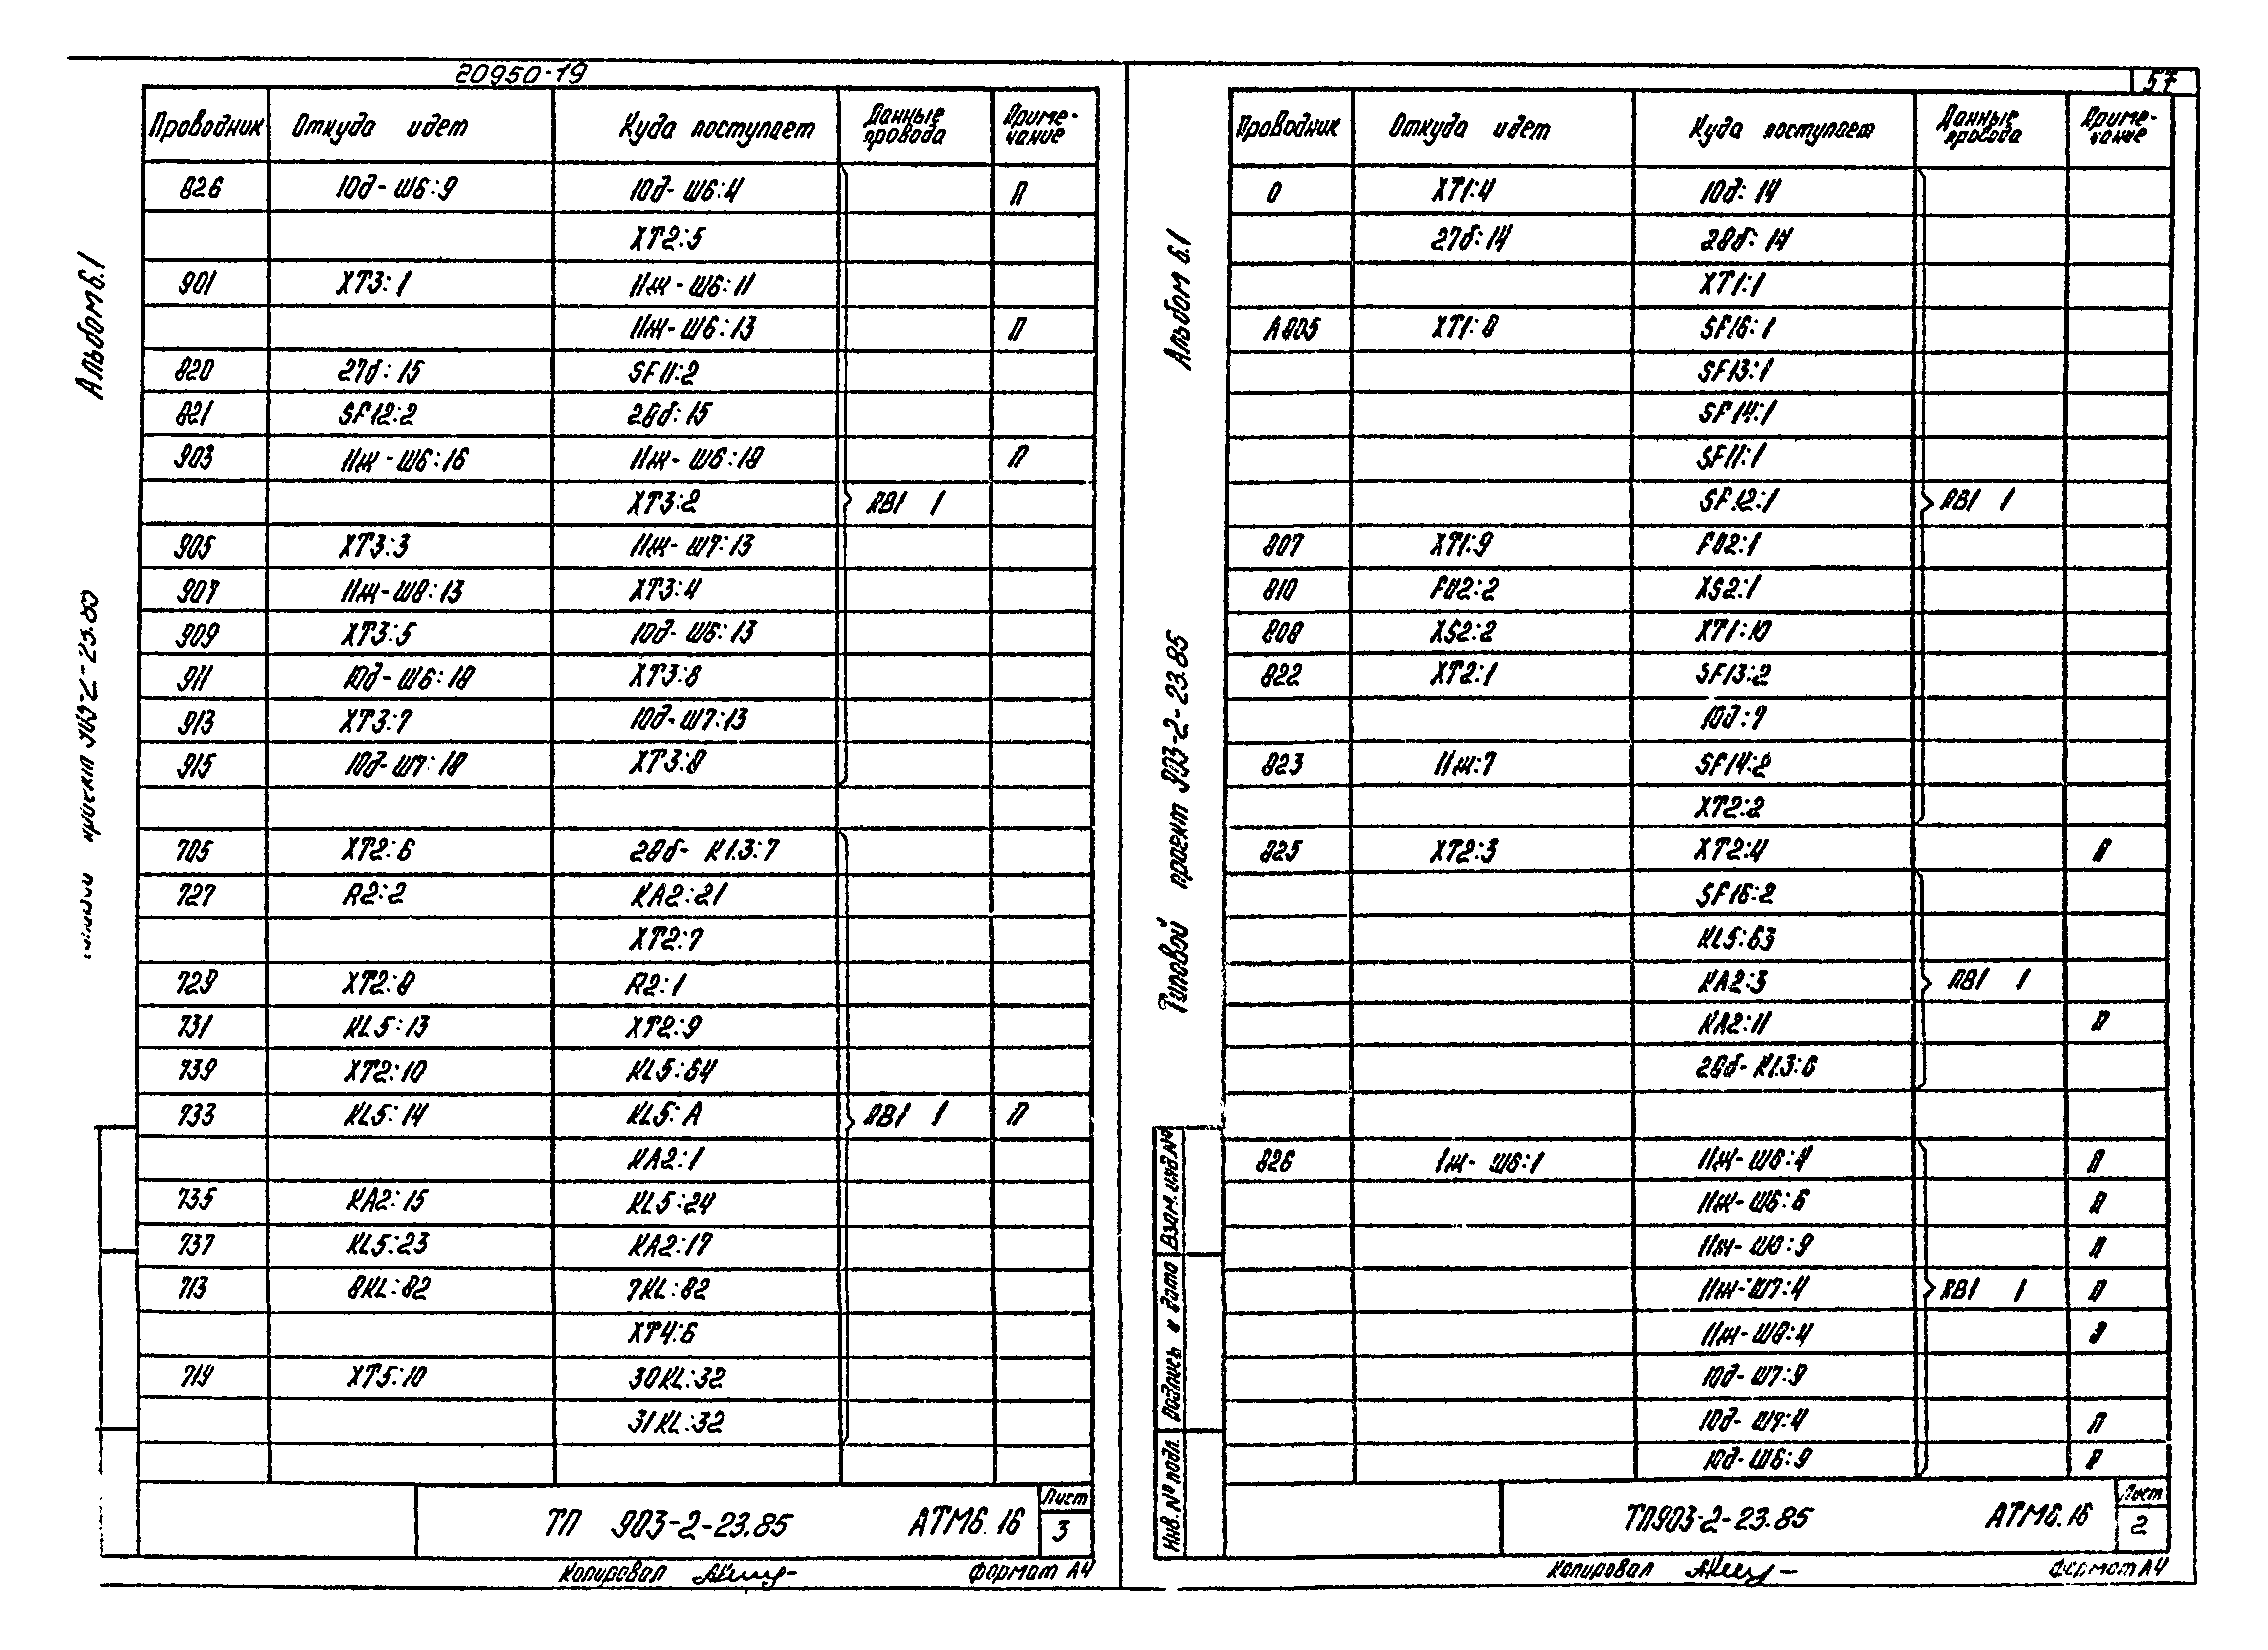 20950-19
57
Альбом 6.1
Проводник Откуда идет Куда поступает Данные провода Приме-чание
826 10д-Ш6:9 10д-Ш6:4 П
ХТ2:5
901 ХТ3:1 11ж-Ш6:11
11ж-Ш6:13 П
820 27б:15 SF11:2
821 SF12:2 28б:15
903 11ж-Ш6:16 11ж-Ш6:18 П
ХТ3:2 ПВ1 1
905 ХТ3:3 11ж-Ш7:13
907 11ж-Ш8:13 ХТ3:4
909 ХТ3:5 10д-Ш6:13
911 10д-Ш6:18 ХТ3:6
913 ХТ3:7 10д-Ш7:13
915 10д-Ш7:18 ХТ3:8
705 ХТ2:6 28б-К1.3:7
727 R2:2 КА2:21
ХТ2:7
729 ХТ2:8 R2:1
731 KL5:13 ХТ2:9
739 ХТ2:10 KL5:64
733 KL5:14 KL5:А ПВ1 1 П
КА2:1
735 КА2:15 KL5:24
737 KL5:23 КА2:17
713 8KL:82 7KL:82
ХТ4:6
714 ХТ5:10 30KL:32
31KL:32
ТП 903-2-23.85 АТМ6.16 Лист 3
Копировал
Формат А4
Альбом 6.1
Типовой проект 903-2-23.85
Взам. инв. №
Подпись и дата
Инв. № подл.
Проводник Откуда идет Куда поступает Данные провода Приме-чание
0 ХТ1:4 10д:14
27б:14 28б:14
ХТ1:1
А805 ХТ1:8 SF16:1
SF13:1
SF14:1
SF11:1
SF12:1 ПВ1 1
807 ХТ1:9 FU2:1
810 FU2:2 XS2:1
808 XS2:2 ХТ1:10
822 ХТ2:1 SF13:2
10д:7
823 11ж:7 SF14:2
ХТ2:2
825 ХТ2:3 ХТ2:4 П
SF16:2
KL5:63
КА2:3 ПВ1 1
КА2:11 П
28б-К1.3:6
826 1ж-Ш6:1 11ж-Ш6:4 П
11ж-Ш6:6 П
11ж-Ш6:9 П
11ж-Ш7:4 ПВ1 1 П
11ж-Ш8:4
10д-Ш7:9
10д-Ш7:4 П
10д-Ш6:9 П
ТП903-2-23.85 АТМ6.16 Лист 2
Копировал
Формат А4